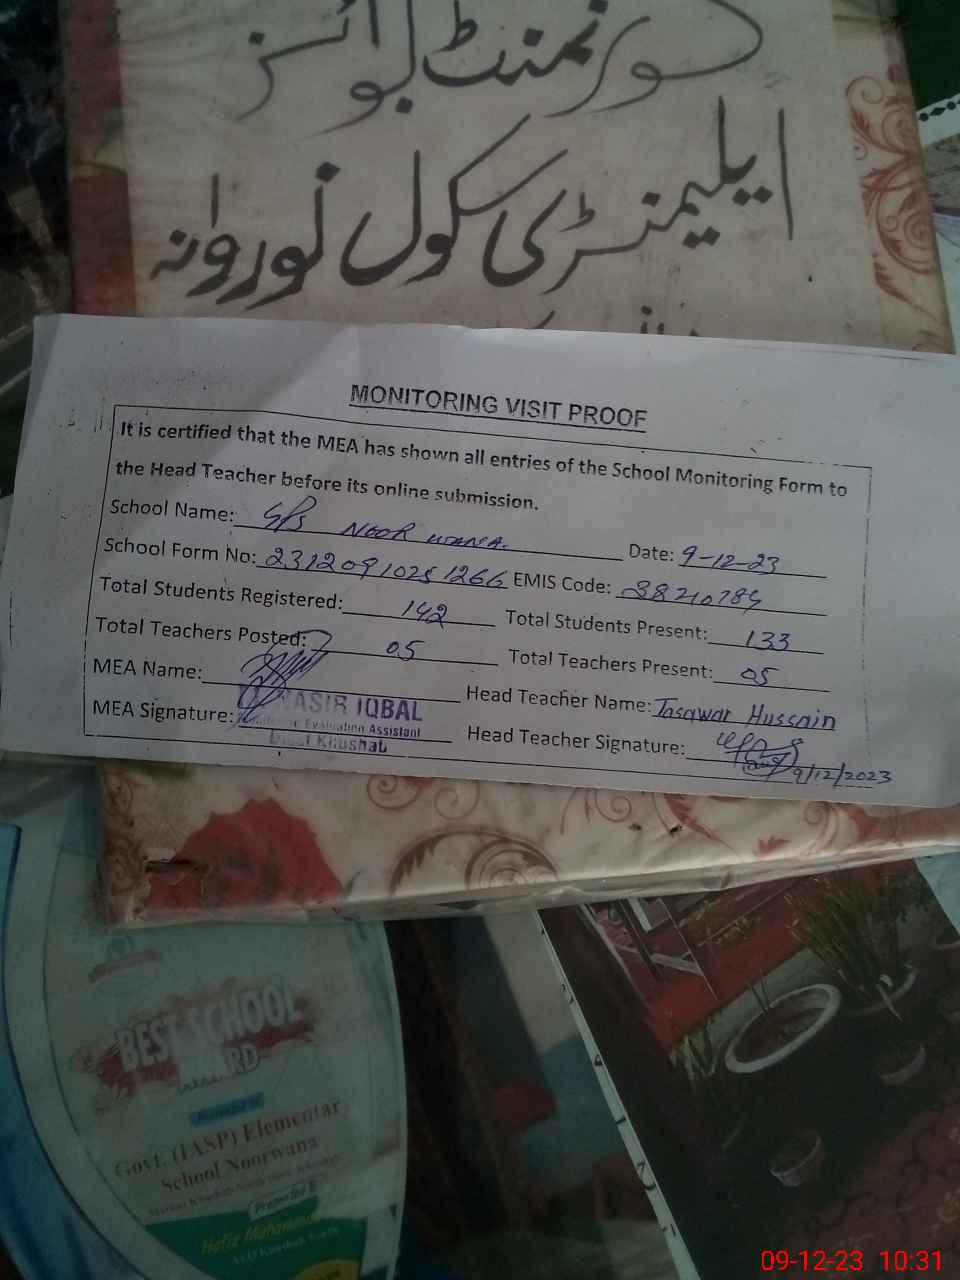 گورنمنٹ بوائز
ایلیمنٹری سکول نوروانہ
MONITORING VISIT PROOF
It is certified that the MEA has shown all entries of the School Monitoring Form to
the Head Teacher before its online submission.
School Name: GPS NOOR WANA. Date: 9-12-23
School Form No: 23120910251266 EMIS Code: 38210784
Total Students Registered: 142 Total Students Present: 133
Total Teachers Posted: 05 Total Teachers Present: 05
MEA Name: Head Teacher Name: Tasawar Hussain
MEA Signature: NASIR IQBAL Head Teacher Signature:
Evaluation Assistant
Distt Khushab
9/12/2023
BEST SCHOOL
AWARD
Presented to
Govt. (IASP) Elementar
School Noorwana
Presented B
Hafiz Mahammad
09-12-23 10:31